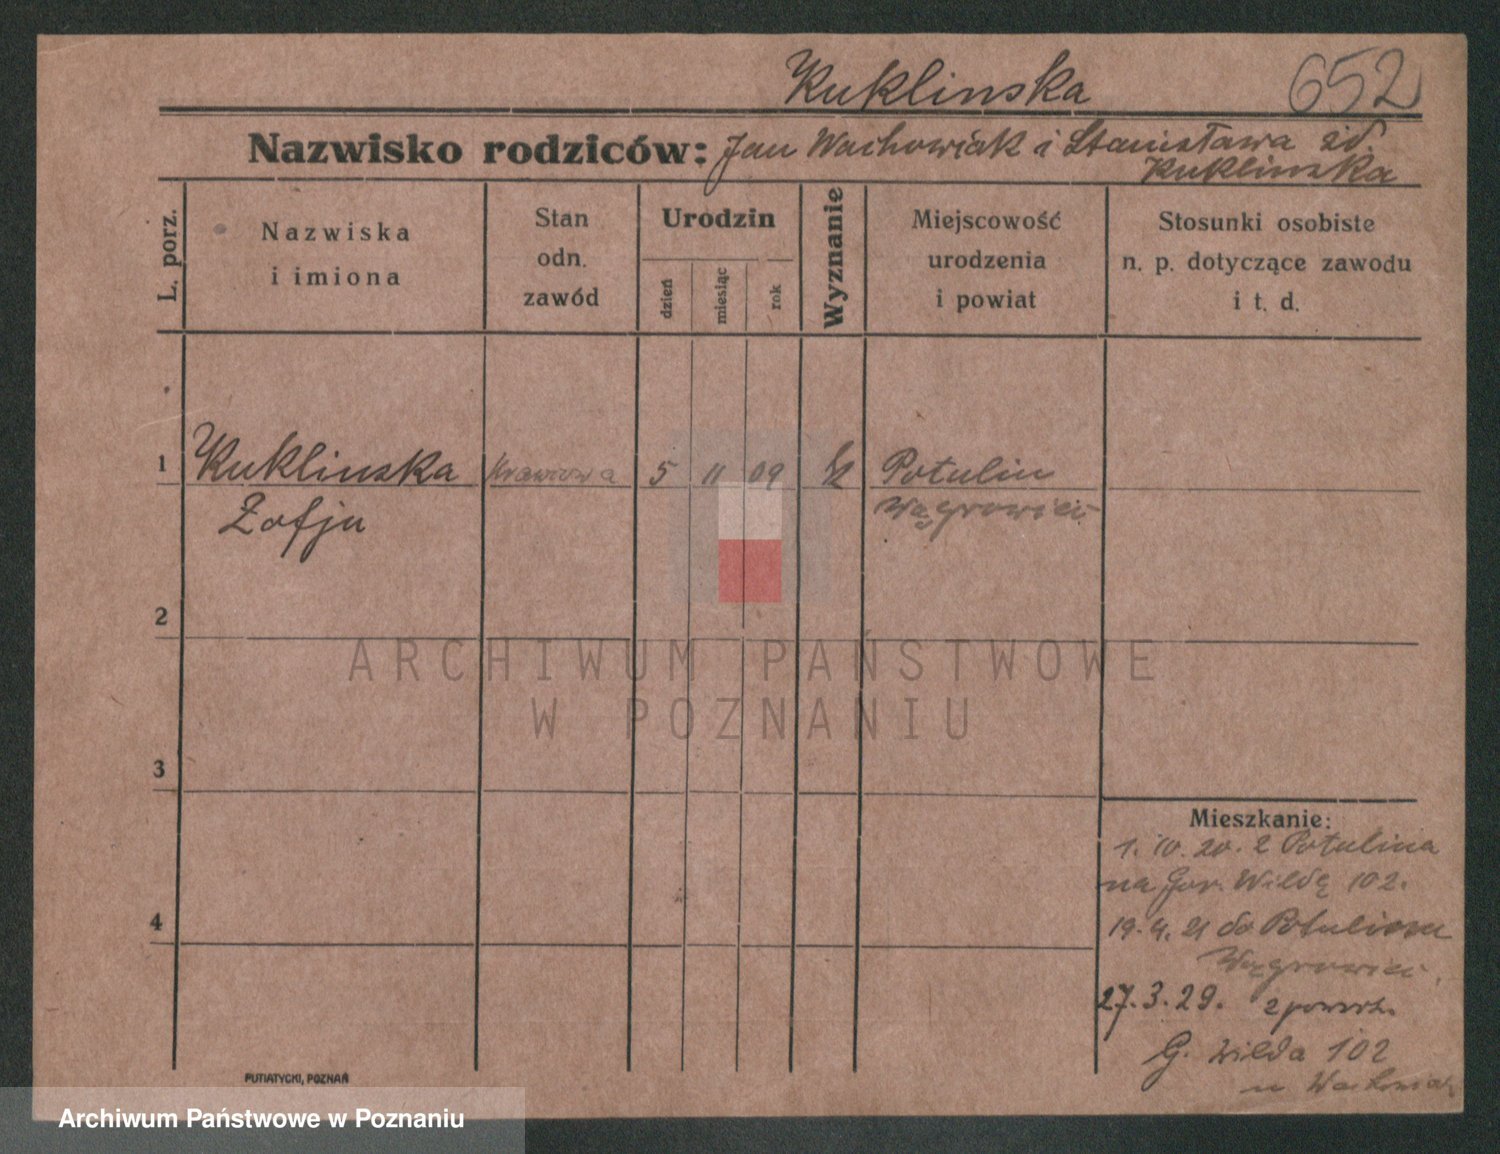 Kuklinska 652
Nazwisko rodziców: Jan Wachowiak i Stanisława żd.
Kuklinska
L. porz.
Nazwiska
i imiona
Stan
odn.
zawód
Urodzin
dzień
miesiąc
rok
Wyznanie
Miejscowość
urodzenia
i powiat
Stosunki osobiste
n. p. dotyczące zawodu
i t. d.
1 Kuklinska Krawcowa 5 11 09 Potulin
Zofja
2
3
4
Mieszkanie:
1. 10. 20. z Potulina
na Gór. Wildę 102.
19. 4. 21 do
27. 3. 29. z powrt.
G. Wilda 102
PUTIATYCKI, POZNAŃ
ARCHIWUM PAŃSTWOWE
W POZNANIU
Archiwum Państwowe w Poznaniu